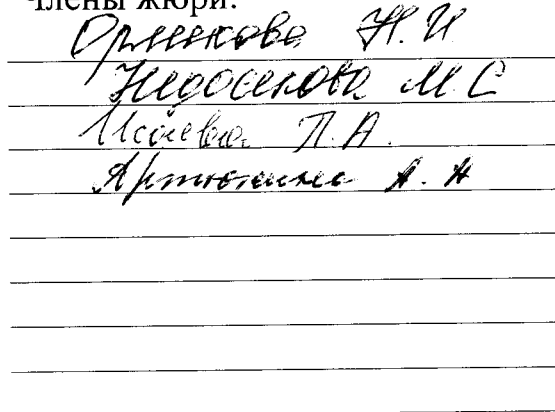 Члены жюри:
Орленкова Н. И
Недосекова М. С
Исаева Л. А.
Артюхина А. Н